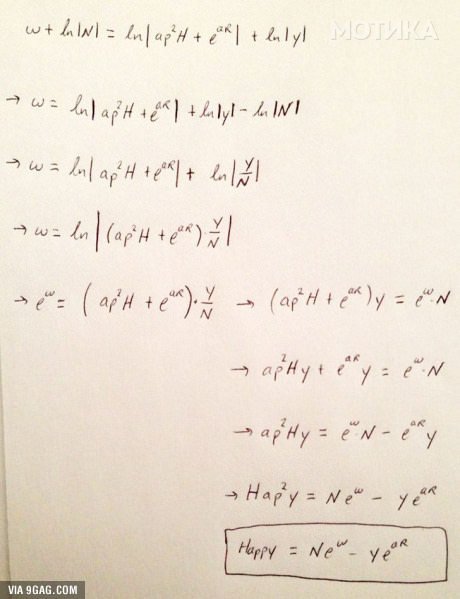 w + ln|N| = ln|ap²H + e^{aR}| + ln|y|
МОТИКА
→ w = ln|ap²H + e^{aR}| + ln|y| - ln|N|
→ w = ln|ap²H + e^{aR}| + ln|Y/N|
→ w = ln|(ap²H + e^{aR})·Y/N|
→ e^w = (ap²H + e^{aR})·Y/N → (ap²H + e^{aR})y = e^w·N
→ ap²Hy + e^{aR}y = e^w·N
→ ap²Hy = e^w·N - e^{aR}y
→ Hap²y = Ne^w - ye^{aR}
Happy = Ne^w - ye^{aR}
VIA 9GAG.COM